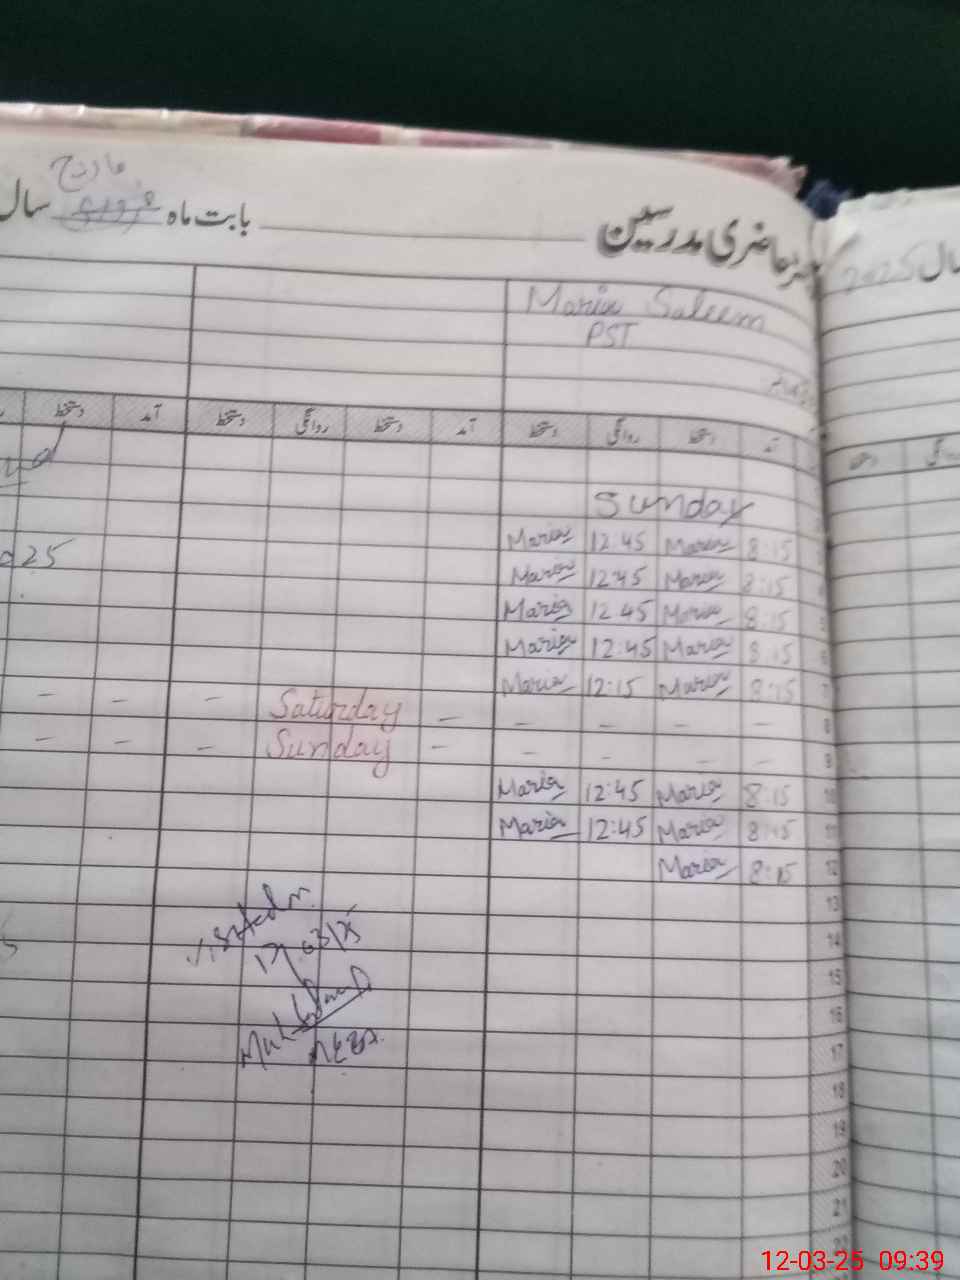 مارچ
رجسٹر حاضری مدرسین بابت ماه فروری سال
سال 2025
Maria Saleem
PST
آمد دستخط روانگی دستخط آمد دستخط روانگی دستخط آمد دستخط
Sunday
3 8:15 Maria 12:45 Maria
4 8:15 Maria 12:45 Maria
025
5 8:15 Maria 12:45 Maria
6 8:15 Maria 12:45 Maria
7 8:15 Maria 12:15 Maria
8 - - - - - Saturday - - -
9 - - - - - Sunday - - -
10 8:15 Maria 12:45 Maria
11 8:15 Maria 12:45 Maria
12 8:15 Maria
13
14
15
16
17
18
19
20
21
12-03-25 09:39